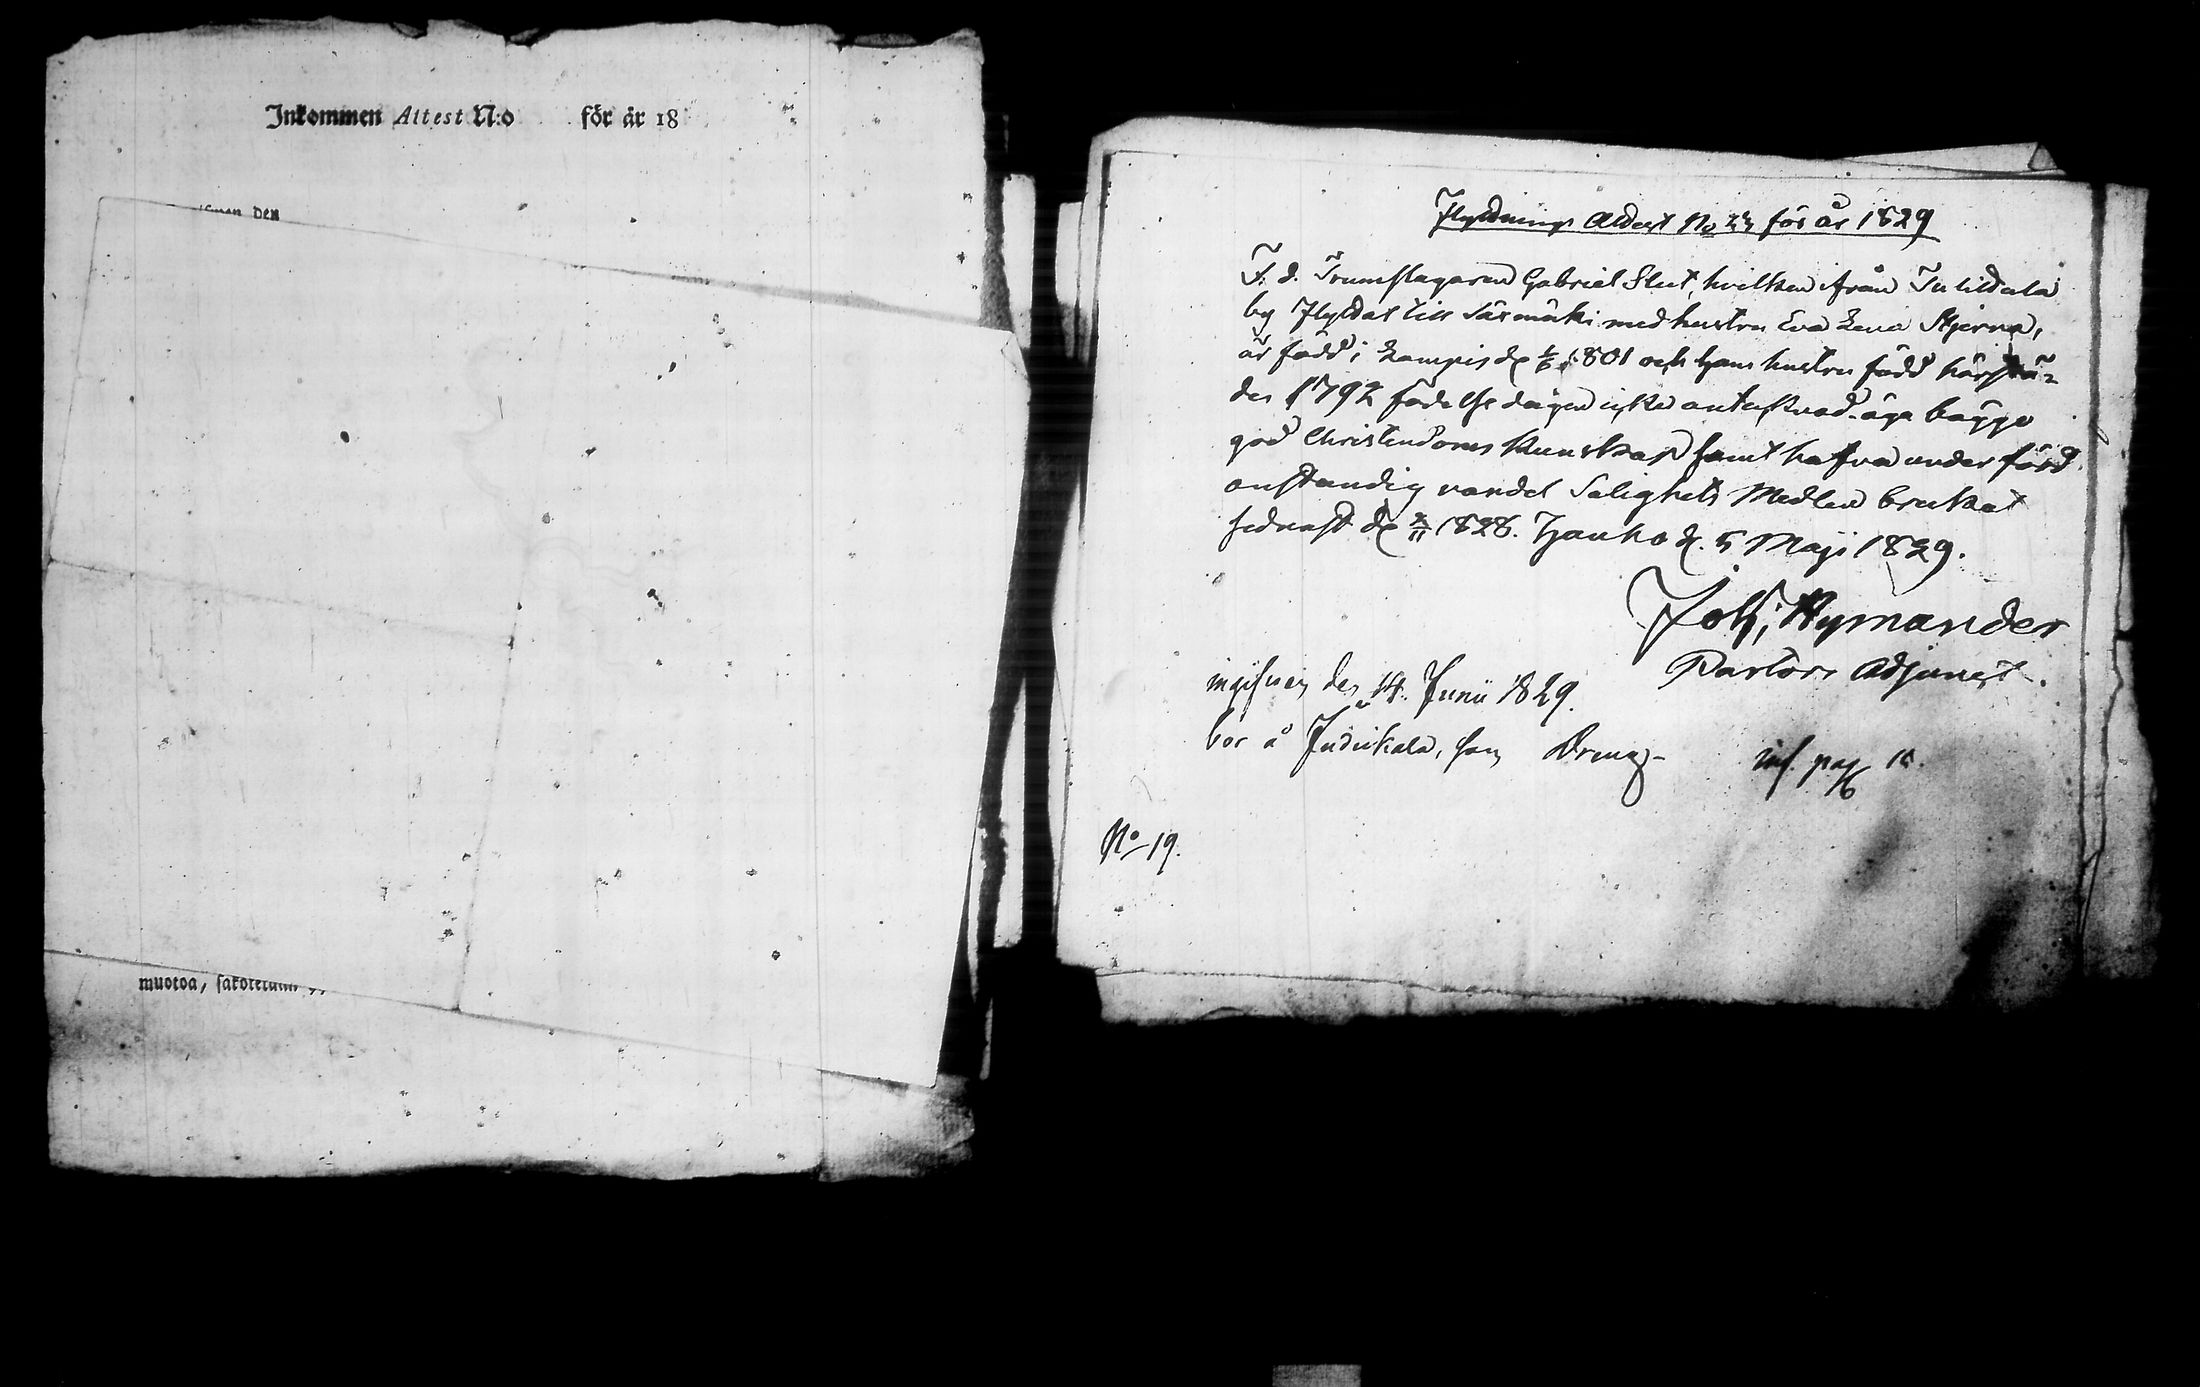 Inkommen Attest N:o för år 18
den
muotoa,
Flyttnings Attest No för år 1829
F. d. Trumslagaren Gabriel Slut, hvilken ifrån
by flyttat till Säxmäki med hustru Eva Lena Stjerna,
är född i Lampis d. 1801 och hans hustru född härstä-
des 1792 födelse dagen icke antecknad. äga bägge
god Christendoms kunskap samt hafva under förd
anständig vandel Salighets Medlen brukat
sednast d. 1828. Tjauko d. 5 Maji 1829.
Joh; Nymander
Pastors Adjunct.
ingifven den 14 Junii 1829.
bor å som Dreng inf. pag 15.
No 19.